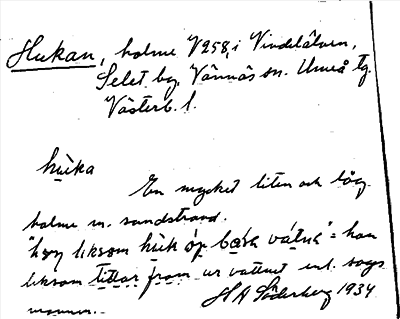 Hukan, holme V258, i Vindelälven,
Selet by, Vännäs sn. Umeå tg.
Västerb. l.
hùka
En mycket liten och låg
holme m. sandstrand.
liksom hùk óp vátnə" = han
liksom tittar fram ur vattnet enl. sags
mannen.
H A Söderberg 1934